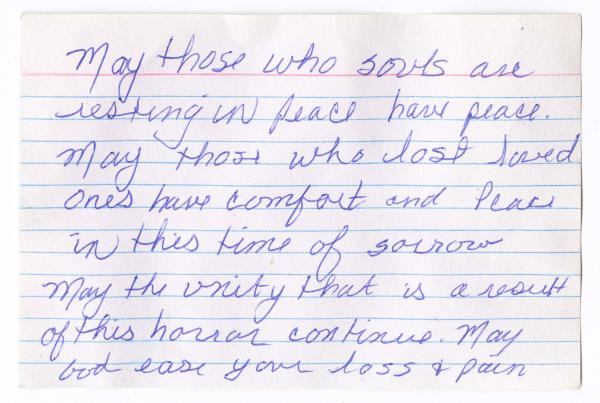 May those who souls are
resting in Peace have peace.
May those who lost loved
ones have comfort and Peace
in this time of sorrow
May the unity that is a result
of this horror continue. May
God ease your loss & pain